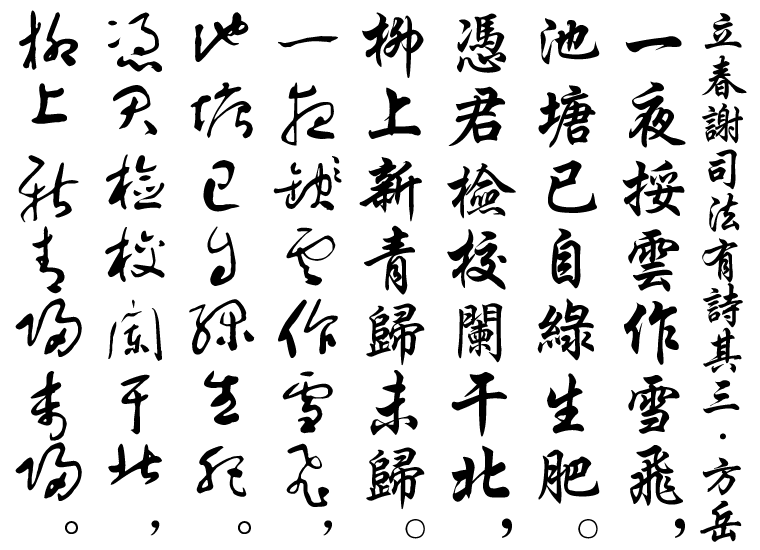 立春謝司法有詩其三·方岳
一夜挼雲作雪飛，
池塘已自綠生肥。
憑君檢校闌干北，
柳上新青歸未歸。
一夜挼雲作雪飛，
池塘已自綠生肥。
憑君檢校闌干北，
柳上新青歸未歸。